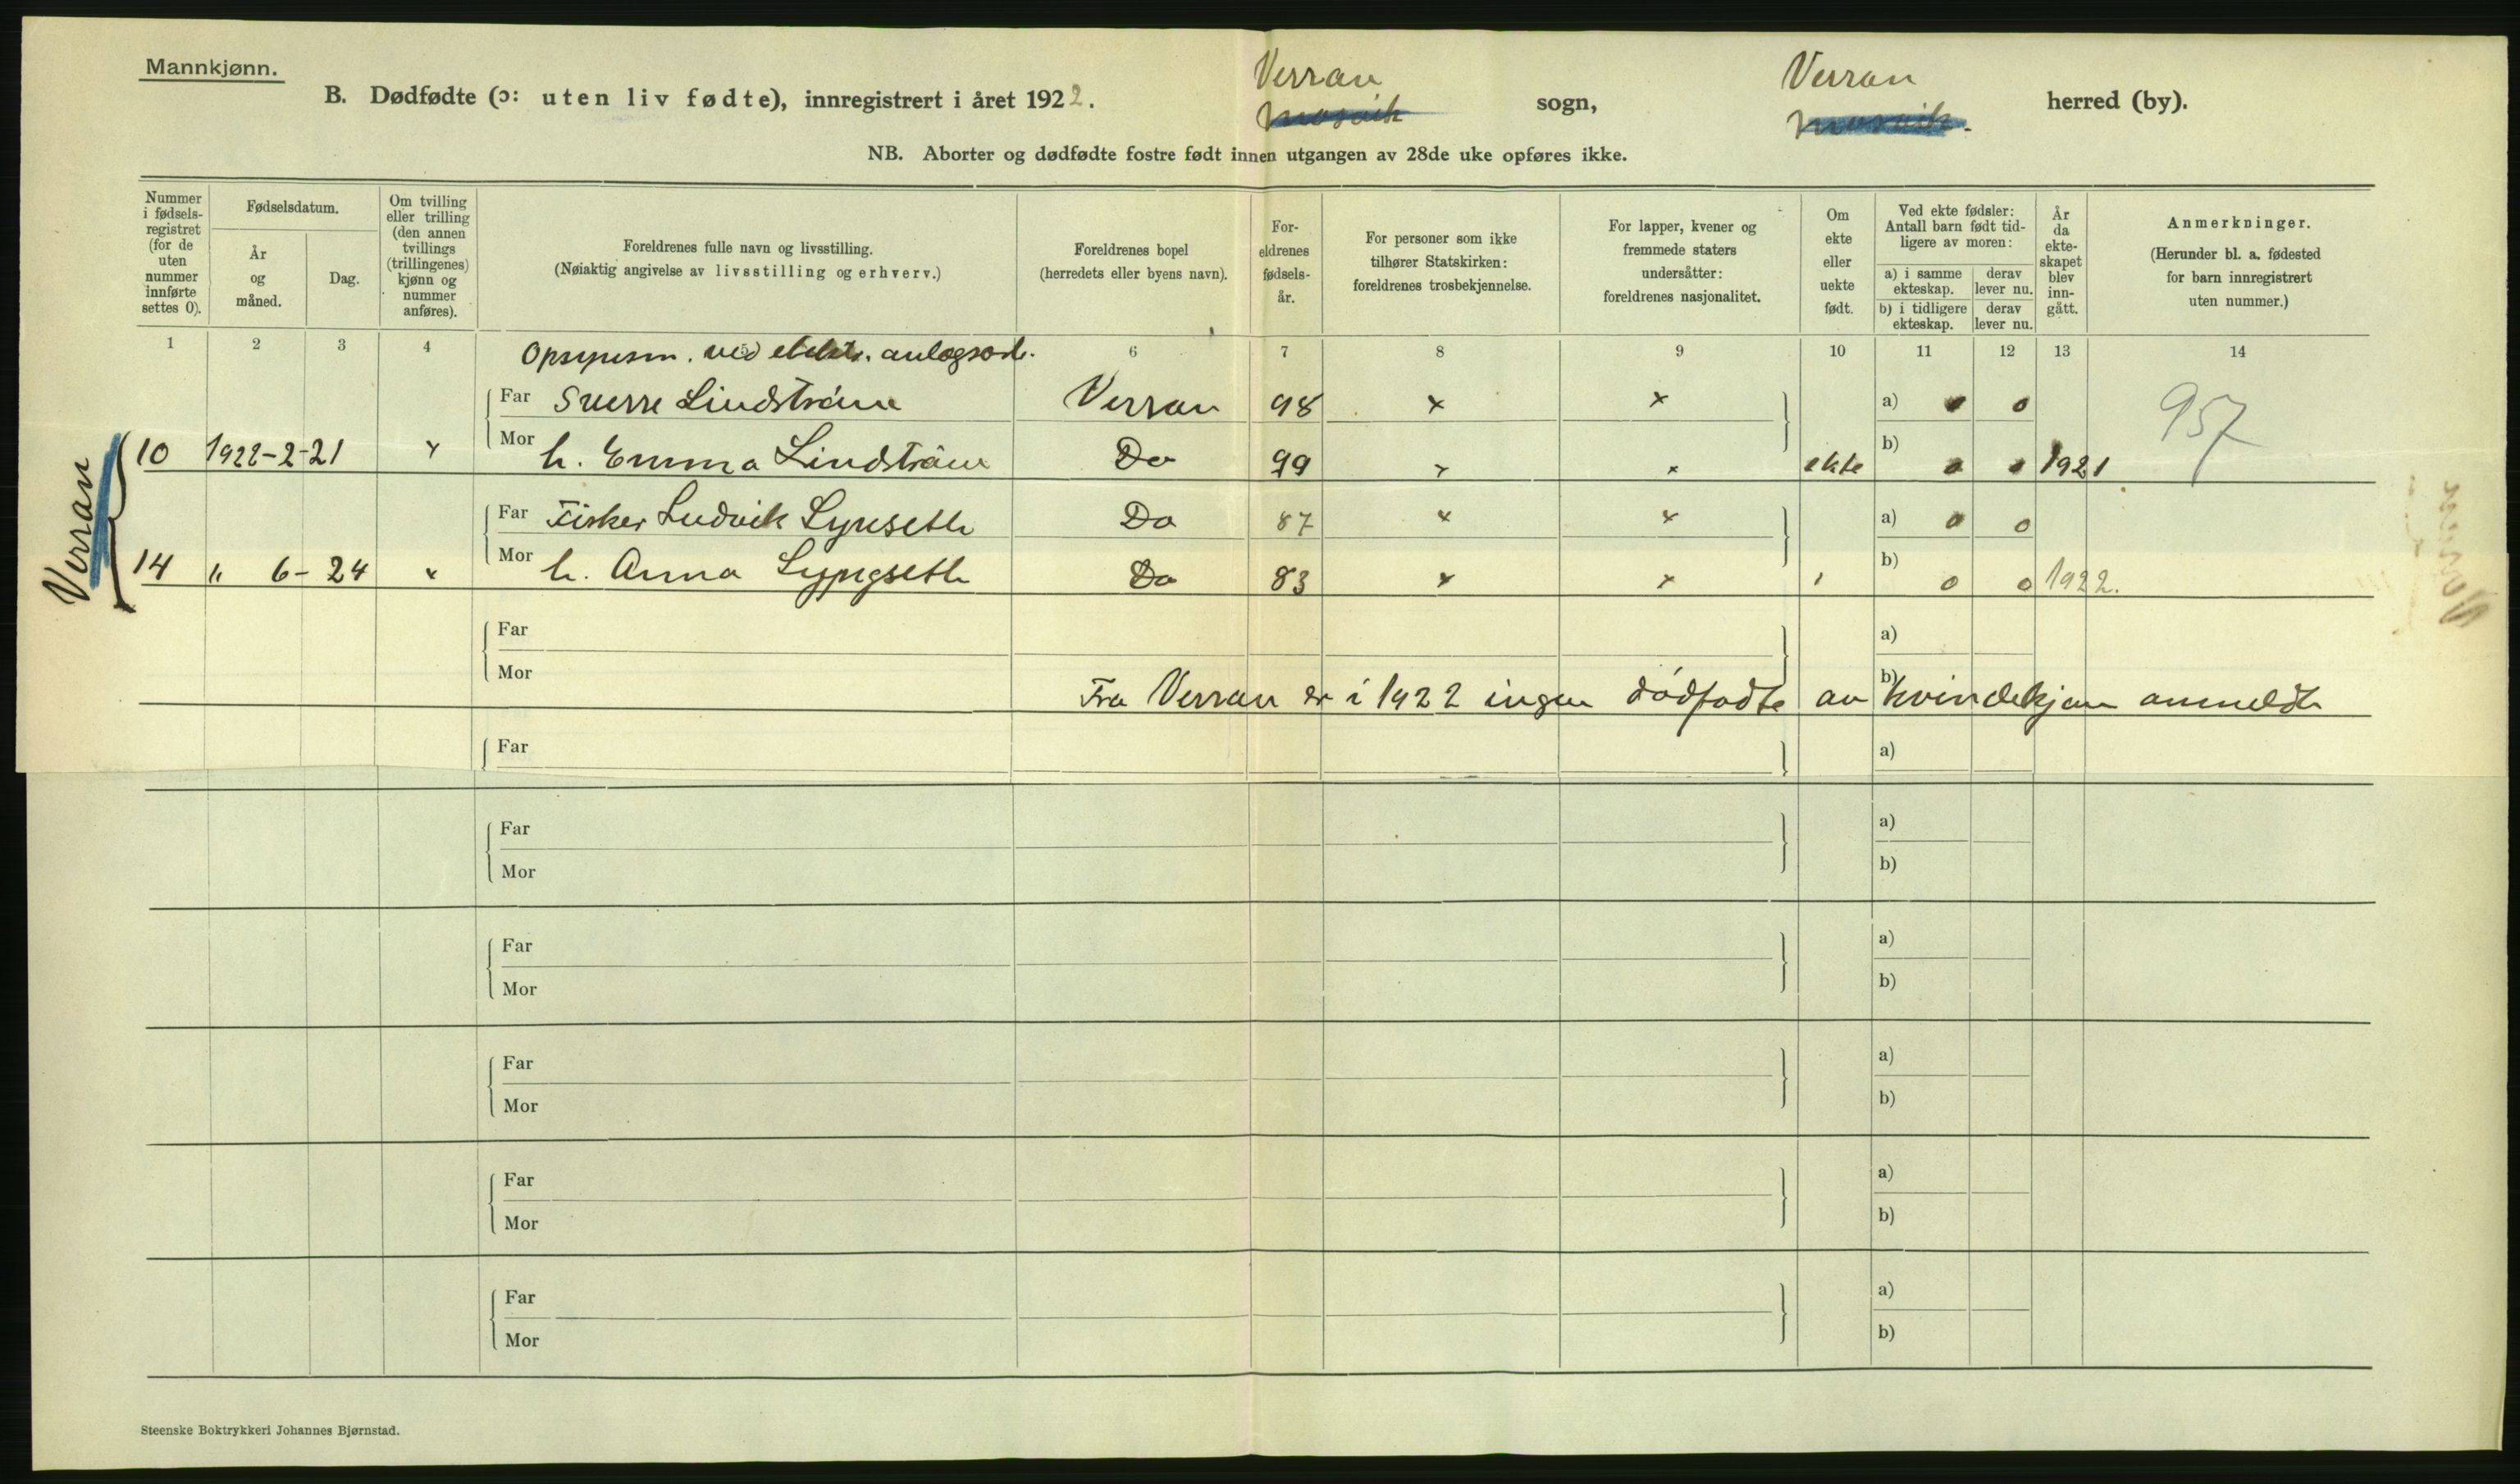 Mannkjønn.
B. Dødfødte (ɔ: uten liv fødte), innregistrert i året 1922. Verran sogn, Verran herred (by).
Mosvik Mosvik.
NB. Aborter og dødfødte fostre født innen utgangen av 28de uke opføres ikke.
Nummer i fødsels-registret (for de uten nummer innførte settes 0).
Fødselsdatum.
År og måned.
Dag.
Om tvilling eller trilling (den annen tvillings (trillingenes) kjønn og nummer anføres).
Foreldrenes fulle navn og livsstilling.
(Nøiaktig angivelse av livsstilling og erhverv.)
Foreldrenes bopel
(herredets eller byens navn).
For-eldrenes fødsels-år.
For personer som ikke tilhører Statskirken: foreldrenes trosbekjennelse.
For lapper, kvener og fremmede staters undersåtter: foreldrenes nasjonalitet.
Om ekte eller uekte født.
Ved ekte fødsler: Antall barn født tid-ligere av moren:
a) i samme ekteskap. derav lever nu.
b) i tidligere ekteskap. derav lever nu.
År da ekte-skapet blev inn-gått.
Anmerkninger.
(Herunder bl. a. fødested for barn innregistrert uten nummer.)
1 2 3 4 6 7 8 9 10 11 12 13 14
Opsynsm. ved elektr. anlægsarb.
Far Sverre Lindstrøm Verran 98 x x a) 0 0 957
10 1922-2-21 x Mor h. Emma Lindstrøm Do 99 x x ekte b) 0 0 1921
Far Fisker Ludvik Lynseth Do 87 x x a) 0 0
14 " 6-24 x Mor h. Anna Lyngseth Do 83 x x ' b) 0 0 1922.
Verran
Far a)
Mor b)
Fra Verran er i 1922 ingen dødfødte av kvindekjøn anmeldt
Far a)
Far a)
Mor b)
Far a)
Mor b)
Far a)
Mor b)
Far a)
Mor b)
Far a)
Mor b)
Steenske Boktrykkeri Johannes Bjørnstad.